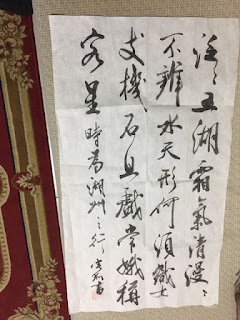 泛〻五湖霜氣清漫〻
不辨水天形何須織女
支機石且戲常娥稱
客星時為湖州之行